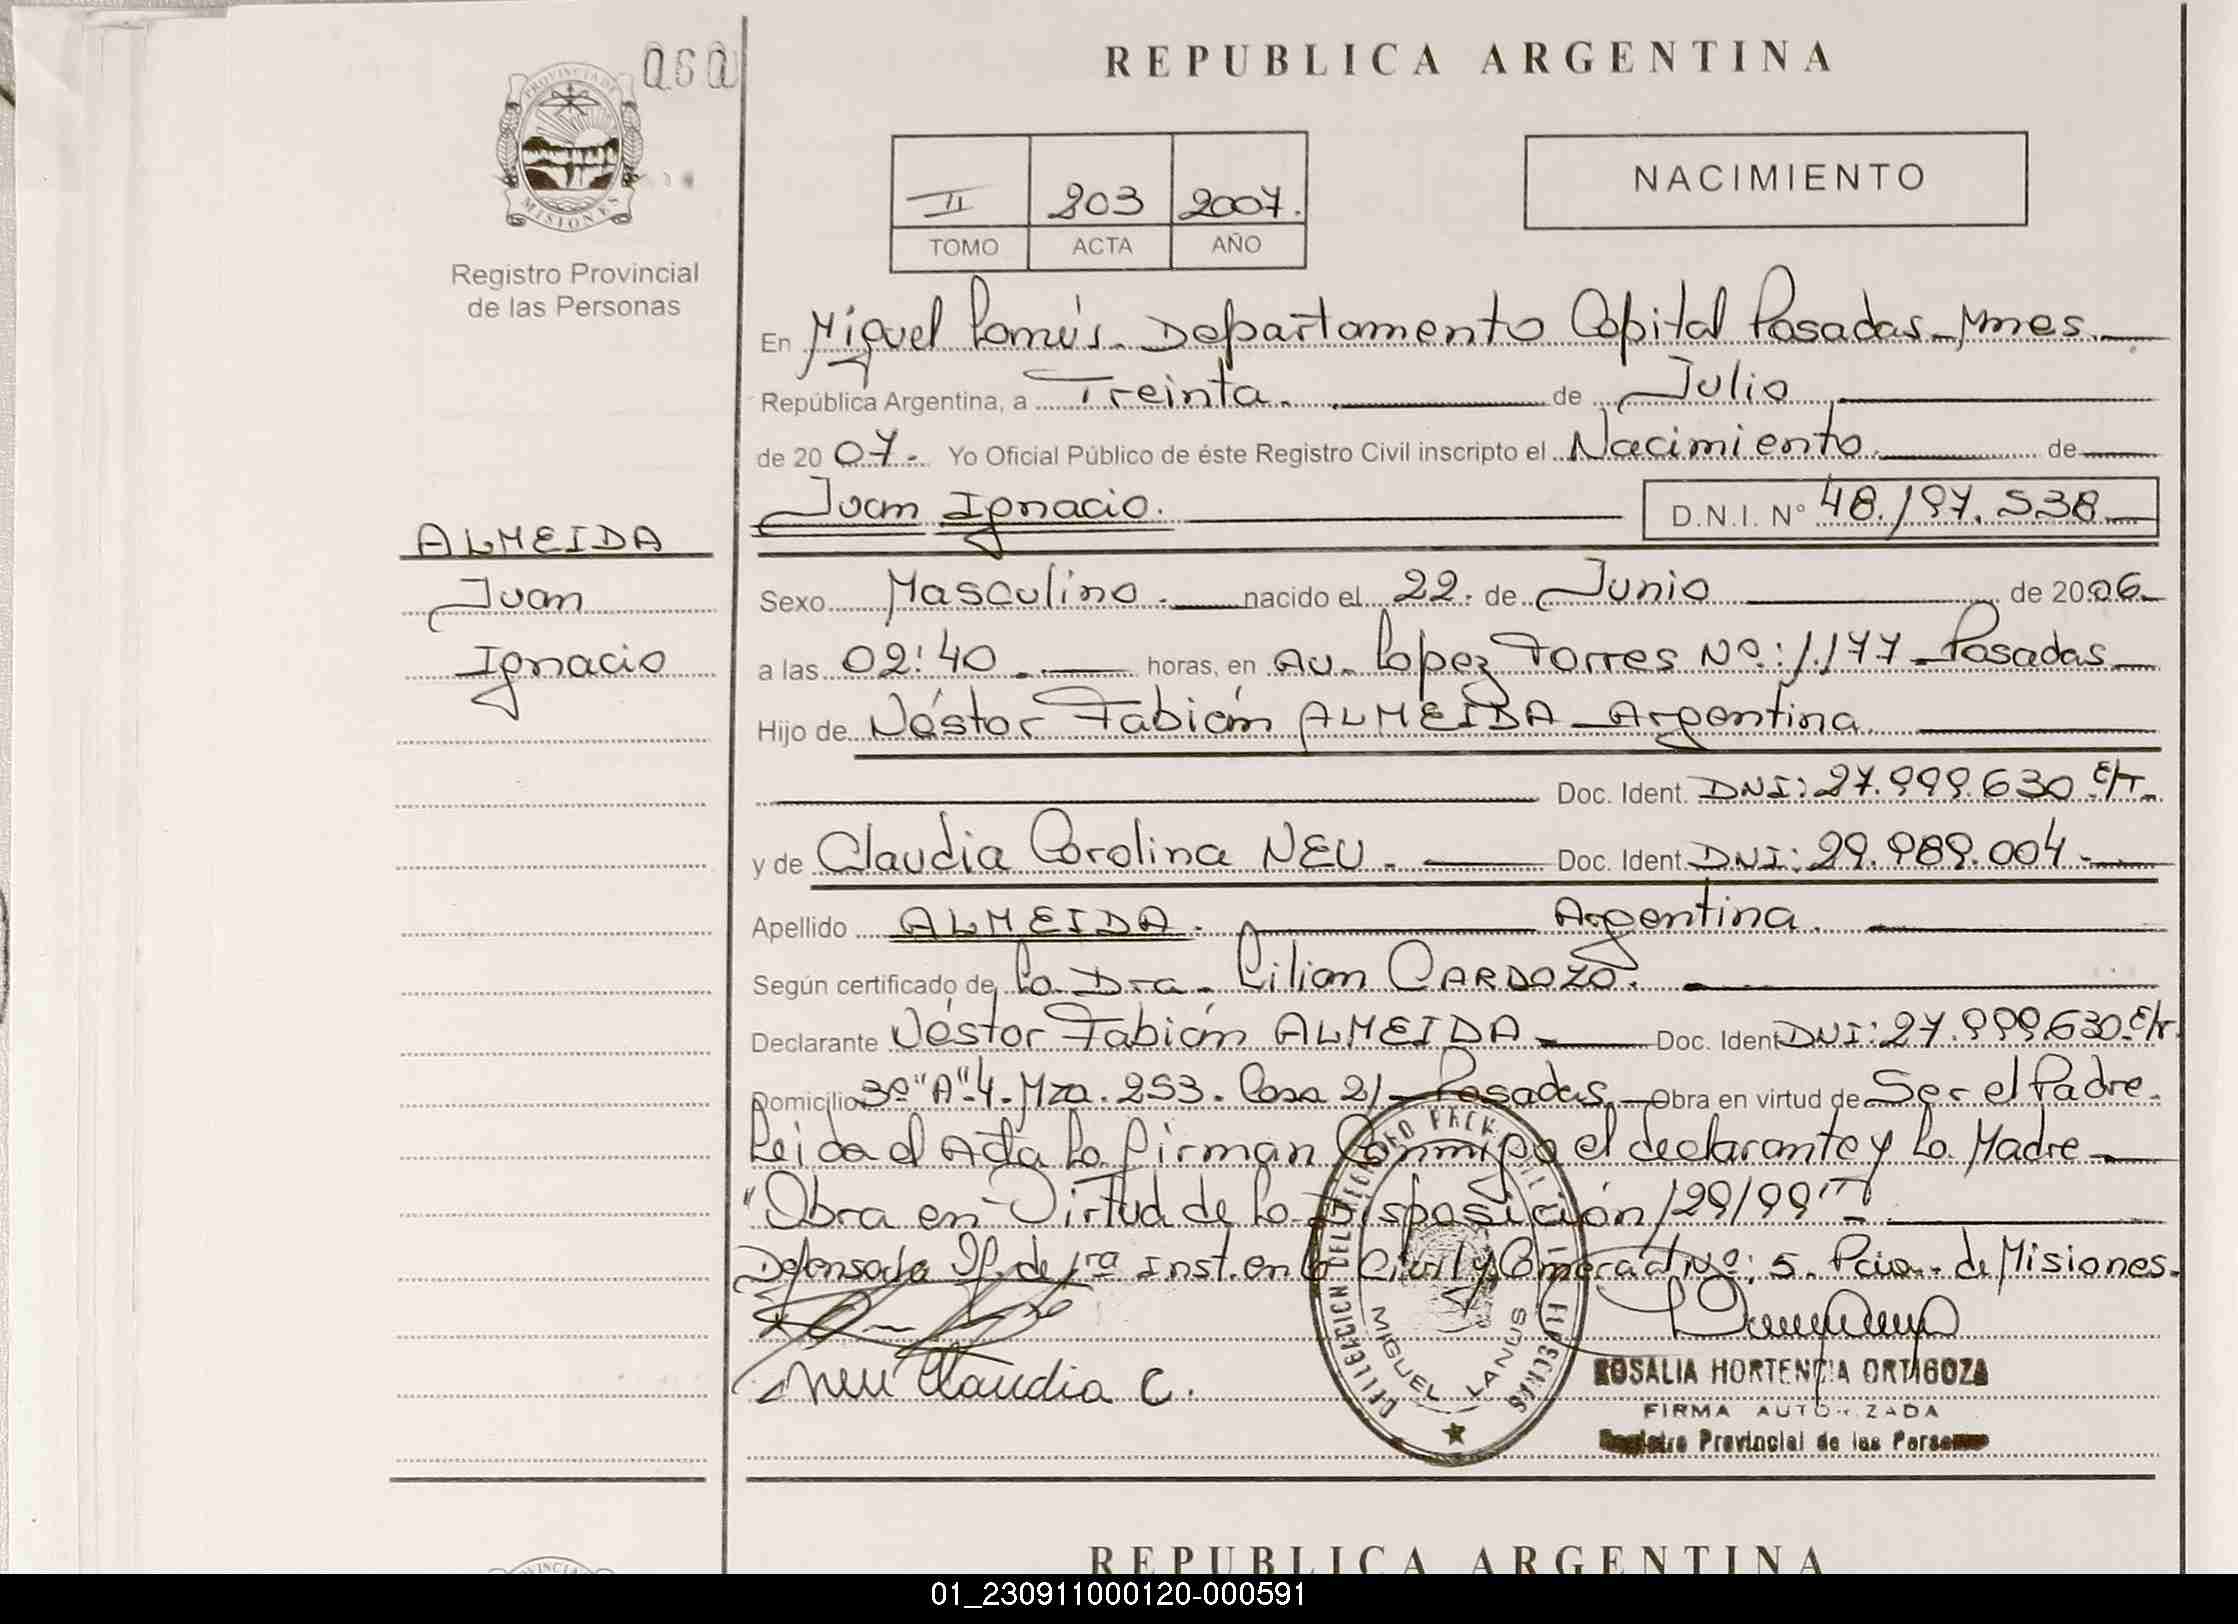 060
PROVINCIA DE
MISIONES
Registro Provincial
de las Personas
ALMEIDA
Juan
Ignacio
REPUBLICA ARGENTINA
II 203 2007.
TOMO ACTA AÑO
NACIMIENTO
En Miguel Lanús. Departamento Capital Posadas - Mnes.
República Argentina, a Treinta. de Julio
de 2007. Yo Oficial Público de éste Registro Civil inscripto el Nacimiento. de
Juan Ignacio. D.N.I. N° 48.197.538
Sexo Masculino. nacido el 22. de Junio de 2006.
a las 02:40. horas, en Av. Lopez Torres Nº: 1.177 - Posadas
Hijo de Néstor Fabián ALMEIDA - Argentina.
Doc. Ident. DNI: 27.999.630 E/T.
y de Claudia Carolina NEU. Doc. Ident. DNI: 29.989.004.
Apellido ALMEIDA. Argentina.
Según certificado de La Dra. Lilian CARDOZO.
Declarante Néstor Fabián ALMEIDA Doc. Ident DNI: 27.999.630. E/T.
Domicilio 3º "A" 4. Mza. 253. Casa 21 - Posadas. Obra en virtud de Ser el Padre.
Leida el Acta La firman Conmigo el declarante y La Madre
"Obra en Virtud de La Disposición 129/99"
Defensoria Of. de 1ra Inst. en Lo Civil y Comercial Nº: 5. Pcia. de Misiones.
Neu Claudia C.
MIGUEL LANUS
ROSALIA HORTENCIA ORTIGOZA
FIRMA AUTORIZADA
Registro Provincial de las Personas
REPUBLICA ARGENTINA
01_230911000120-000591